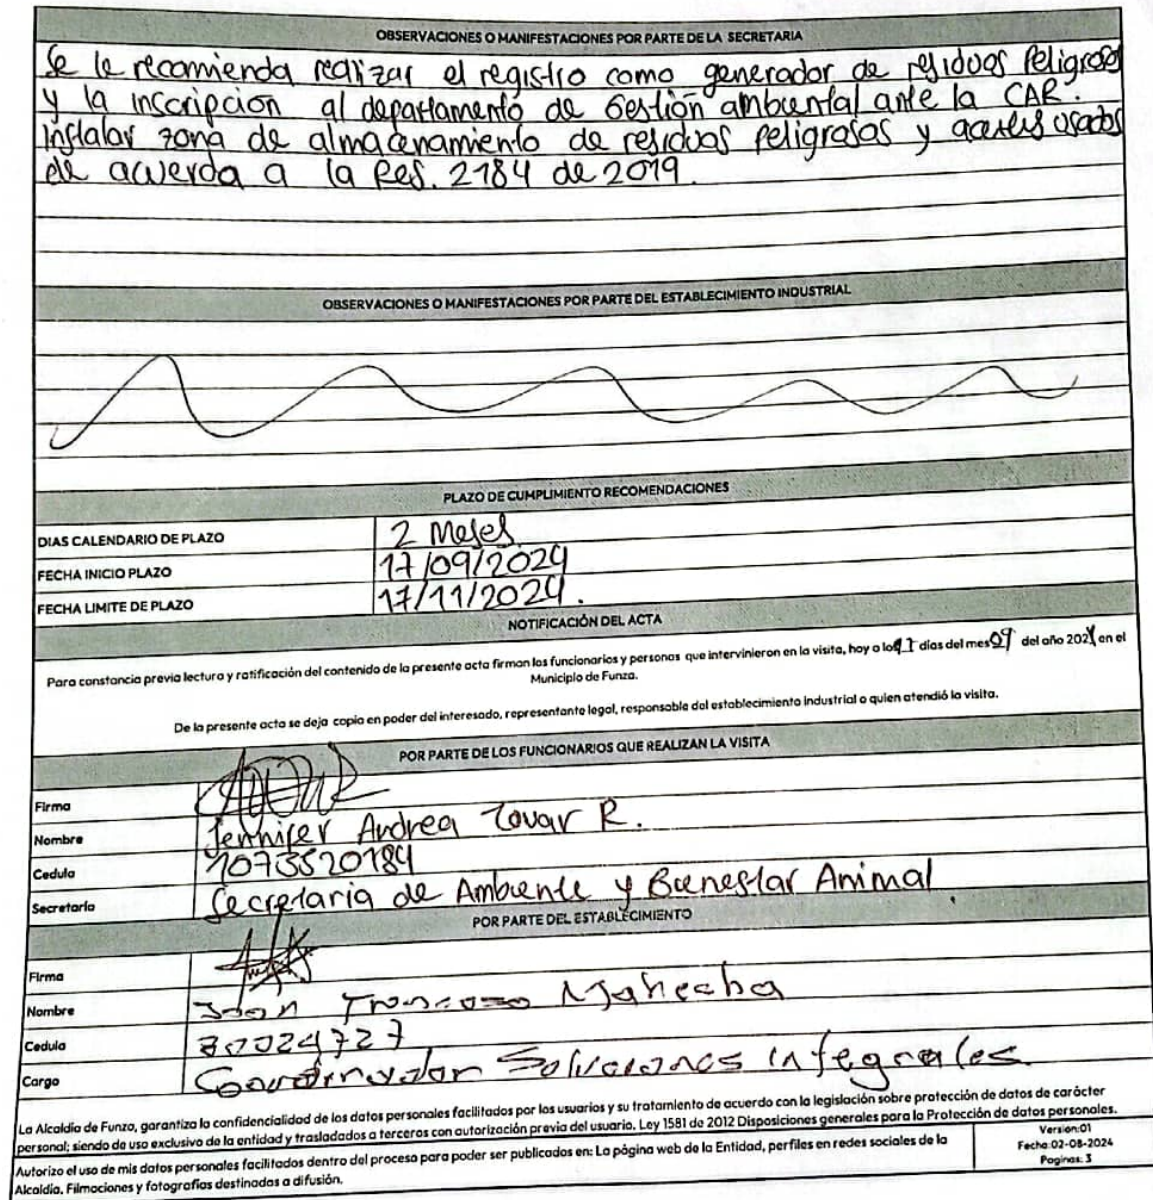 OBSERVACIONES O MANIFESTACIONES POR PARTE DE LA SECRETARIA
Se le recomienda realizar el registro como generador de residuos Peligrosos
y la inscripcion al departamento de Gestión ambiental ante la CAR.
Instalar zona de almacenamiento de residuos peligrosos y aceites usados
de acuerdo a la Res. 2184 de 2019.
OBSERVACIONES O MANIFESTACIONES POR PARTE DEL ESTABLECIMIENTO INDUSTRIAL
PLAZO DE CUMPLIMIENTO RECOMENDACIONES
DIAS CALENDARIO DE PLAZO 2 Meses
FECHA INICIO PLAZO 17/09/2024
FECHA LIMITE DE PLAZO 17/11/2024.
NOTIFICACIÓN DEL ACTA
Para constancia previa lectura y ratificación del contenido de la presente acta firman los funcionarios y personas que intervinieron en la visita, hoy a los 17 dias del mes 09 del año 2024 en el
Municipio de Funza.
De la presente acta se deja copia en poder del interesado, representante legal, responsable del establecimiento industrial o quien atendió la visita.
POR PARTE DE LOS FUNCIONARIOS QUE REALIZAN LA VISITA
Firma
Nombre Jennifer Andrea Tovar R.
Cedula 1073520184
Secretaría Secretaria de Ambiente y Bienestar Animal
POR PARTE DEL ESTABLECIMIENTO
Firma
Nombre Mahecha
Cedula
Cargo Coordinador Soluciones integrales
La Alcaldía de Funza, garantiza la confidencialidad de los datos personales facilitados por los usuarios y su tratamiento de acuerdo con la legislación sobre protección de datos de carácter
personal; siendo de uso exclusivo de la entidad y trasladados a terceros con autorización previa del usuario. Ley 1581 de 2012 Disposiciones generales para la Protección de datos personales.
Autorizo el uso de mis datos personales facilitados dentro del proceso para poder ser publicados en: La página web de la Entidad, perfiles en redes sociales de la
Alcaldía. Filmaciones y fotografías destinadas a difusión.
Version:01
Fecha:02-08-2024
Paginas: 3